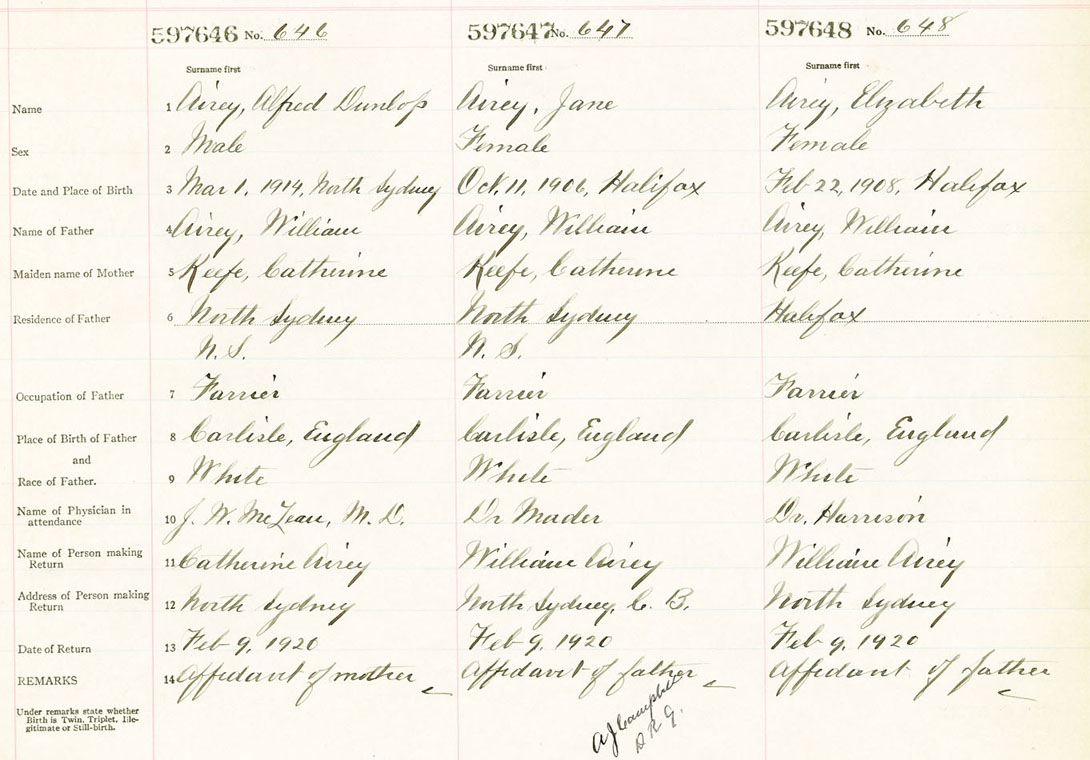 597646 No. 646 597647 No. 647 597648 No. 648
Surname first Surname first Surname first
Name 1 Airey, Alfred Dunlop Airey, Jane Airey, Elizabeth
Sex 2 Male Female Female
Date and Place of Birth 3 Mar 1, 1914, North Sydney Oct. 11, 1906, Halifax Feb 22, 1908, Halifax
Name of Father 4 Airey, William Airey, William Airey, William
Maiden name of Mother 5 Keefe, Catherine Keefe, Catherine Keefe, Catherine
Residence of Father 6 North Sydney North Sydney Halifax
N. S. N. S.
Occupation of Father 7 Farrier Farrier Farrier
Place of Birth of Father 8 Carlisle, England Carlisle, England Carlisle, England
and
Race of Father. 9 White White White
Name of Physician in
attendance 10 J. W. McLean, M. D. Dr Mader Dr. Harrison
Name of Person making
Return 11 Catherine Airey William Airey William Airey
Address of Person making
Return 12 North Sydney North Sydney, C. B. North Sydney
Date of Return 13 Feb 9, 1920 Feb 9, 1920 Feb 9, 1920
REMARKS 14 Affidavit of mother Affidavit of father Affidavit of father
Under remarks state whether
Birth is Twin, Triplet, Ille-
gitimate or Still-birth.
AJ Campbell
D. R. G.